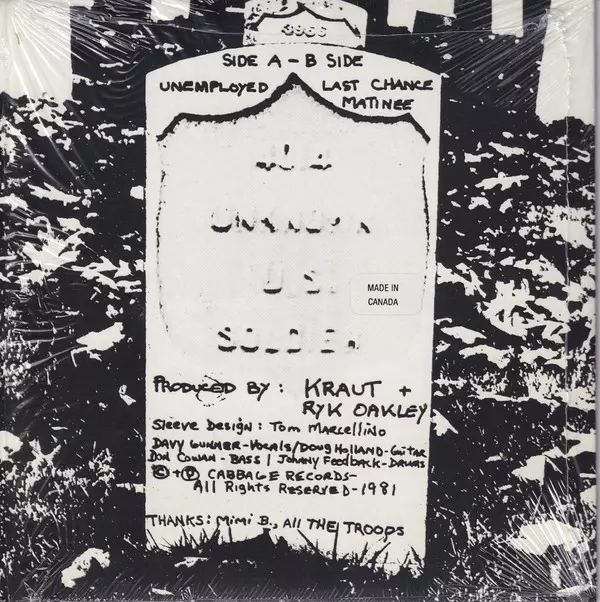 SIDE A - B SIDE
UNEMPLOYED LAST CHANCE
MATINEE
UNKNOWN
U.S.
SOLDIER
MADE IN
CANADA
PRODUCED BY: KRAUT +
RYK OAKLEY
Sleeve Design: Tom Marcellino
DAVY GUNNER-Vocals/DOUG HOLLAND-Guitar
DON COWAN - BASS / Johnny Feedback-DRUMS
©+℗ CABBAGE RECORDS-
All Rights RESERVED-1981
THANKS: Mimi B., All THE TROOPS